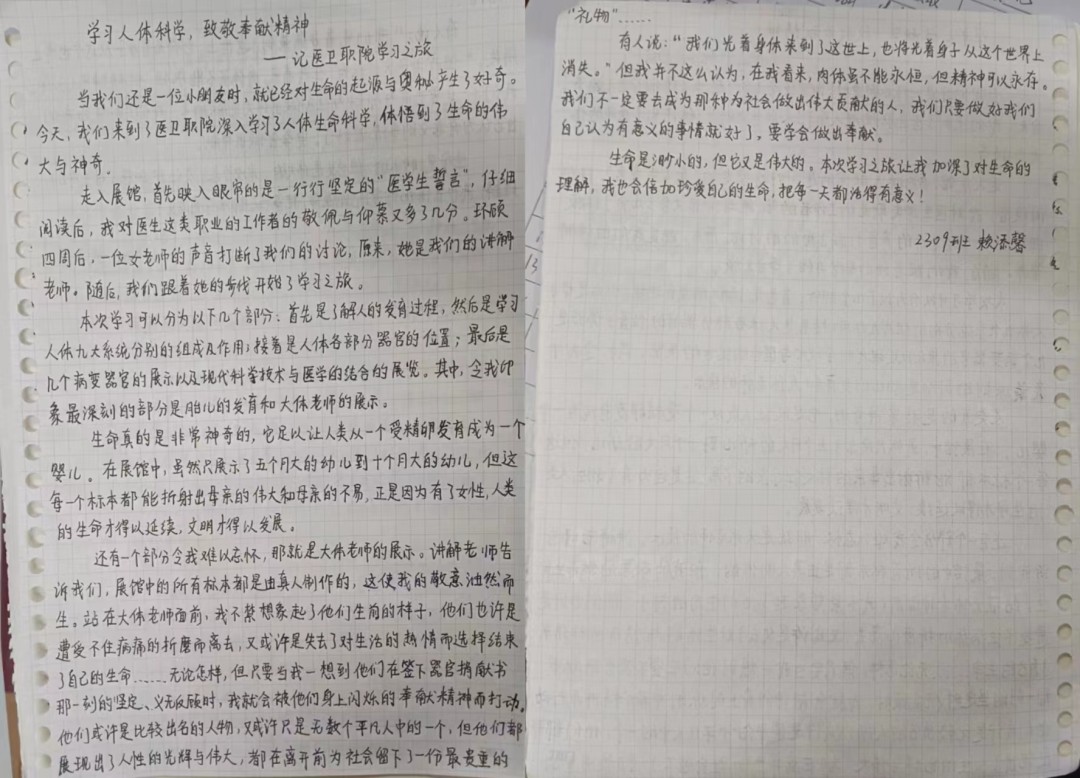 学习人体科学，致敬奉献精神
——记医卫职院学习之旅
当我们还是一位小朋友时，就已经对生命的起源与奥秘产生了好奇。
今天，我们来到了医卫职院深入学习了人体生命科学，体悟到了生命的伟
大与神奇。
走入展馆，首先映入眼帘的是一行行坚定的“医学生誓言”，仔细
阅读后，我对医生这类职业的工作者的敬佩与仰慕又多了几分。环顾
四周后，一位女老师的声音打断了我们的讨论，原来，她是我们的讲解
老师。随后，我们跟着她的步伐开始了学习之旅。
本次学习可以分为以下几个部分：首先是了解人的发育过程，然后是学习
人体九大系统分别的组成及作用；接着是人体各部分器官的位置；最后是
几个病变器官的展示以及现代科学技术与医学的结合的展览。其中，令我印
象最深刻的部分是胎儿的发育和大体老师的展示。
生命真的是非常神奇的，它足以让人类从一个受精卵发育成为一个
婴儿。在展馆中，虽然只展示了五个月大的幼儿到十个月大的幼儿，但这
每一个标本都能折射出母亲的伟大和母亲的不易，正是因为有了女性，人类
的生命才得以延续，文明才得以发展。
还有一个部分令我难以忘怀，那就是大体老师的展示。讲解老师告
诉我们，展馆中的所有标本都是由真人制作的，这使我的敬意油然而
生。站在大体老师面前，我不禁想象起了他们生前的样子，他们也许是
遭受不住病痛的折磨而离去，又或许是失去了对生活的热情而选择结束
了自己的生命……无论怎样，但只要当我一想到他们在签下器官捐献书
那一刻的坚定、义无反顾时，我就会被他们身上闪烁的奉献精神而打动。
他们或许是比较出名的人物，又或许只是无数个平凡人中的一个，但他们都
展现出了人性的光辉与伟大，都在离开前为社会留下了一份最贵重的
“礼物”……
有人说：“我们光着身体来到了这世上，也将光着身子从这个世界上
消失。”但我并不这么认为，在我看来，肉体虽不能永恒，但精神可以永存。
我们不一定要去成为那种为社会做出伟大贡献的人，我们只要做好我们
自己认为有意义的事情就好了，要学会做出奉献。
生命是渺小的，但它又是伟大的。本次学习之旅让我加深了对生命的
理解，我也会倍加珍爱自己的生命，把每一天都活得有意义！
2309班 赖添馨
13